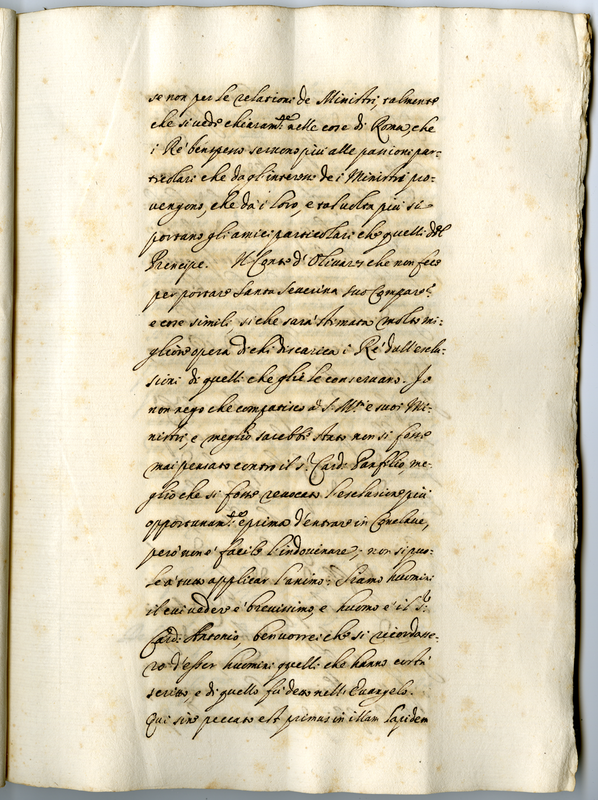 se non per le relationi de Ministri, talmente
che si vede chiaram.te nelle cose di Roma, che
i Rè benspesso servono più alle passioni par-
ticolari che da gl'interessi de i Ministri pro-
vengono, che dà i loro, e tal volta più si
portano gli amici particolari che quelli del
Prencipe. Il Conte d'Olivares che non fece
per portare Santa Severina suo Compare?
e cose simili, si che sarà stimata molto mi-
gliore opera di chi discarica i Rè dall'esclu-
sioni di quelli che gliè le conservano. Io
non nego che compatisco à S. M.tà e suoi Mi-
nistri, e meglio sarebbe stato non si fosse
mai pensato contro il S.r Card: Panfilio, me-
glio che si fosse revocata l'esclusione più
opportunam.te e prima d'entrare in Conclave,
però non è facile l'indovinare, non si puo-
le à tutto applicar l'animo: Siamo huomini
il cui vedere è brevissimo, e huomo è il S.r
Card: Antonio, ben vorrei che si ricordasse-
ro d'esser huomini quelli che hanno costì
scritto, e di quello fù detto nelli Evangelo.
Qui sine peccato est primus in illam lapidem